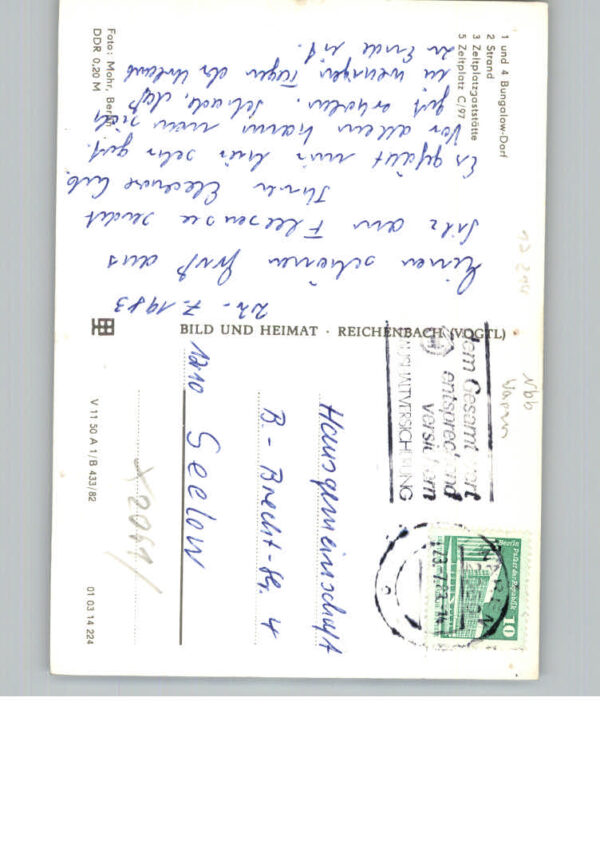 1 und 4 Bungalow-Dorf
2 Strand
3 Zeltplatzgaststätte
5 Zeltplatz C/97
22. 7. 1983
Einen schönen Gruß aus
Silz am Fleesensee sendet
Ihnen Eleonore
Es gefällt mir hier sehr gut.
Vor allem kann man sich
gut erholen. Schade, daß
in wenigen Tagen der Urlaub
zu Ende ist.
Foto: Mohr, Berlin
DDR 0,20 M
BILD UND HEIMAT · REICHENBACH (VOGTL)
V 11 50 A 1/B 433/82
01 03 14 224
dem Gesamtwert
entsprechend
versichern
HAUSHALTVERSICHERUNG
WAREN
23.-7.83
Berlin, Palast der Republik
10
DDR
Hausgemeinschaft
B.-Brecht-Str. 4
1210 Seelow
Nbb
Waren